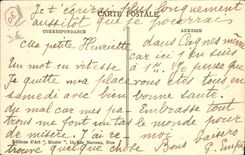 Je t'écrirai plus longuement
aussitôt que je pourrai
CARTE POSTALE
CORRESPONDANCE
ADRESSE
Ma petite Henriette
Un mot en vitesse
Je quitte ma place
samedi avec bien
du mal car mes pa-
trons me font
de misère. J'ai re
trouvé quelque chose
dans Cagnes même
car ici j'en suis
Je pense que
vous êtes tous en
bonne santé.
Embrasse tout
le monde pour
moi
Bons baisers
Editions d'Art "Munier", Nice